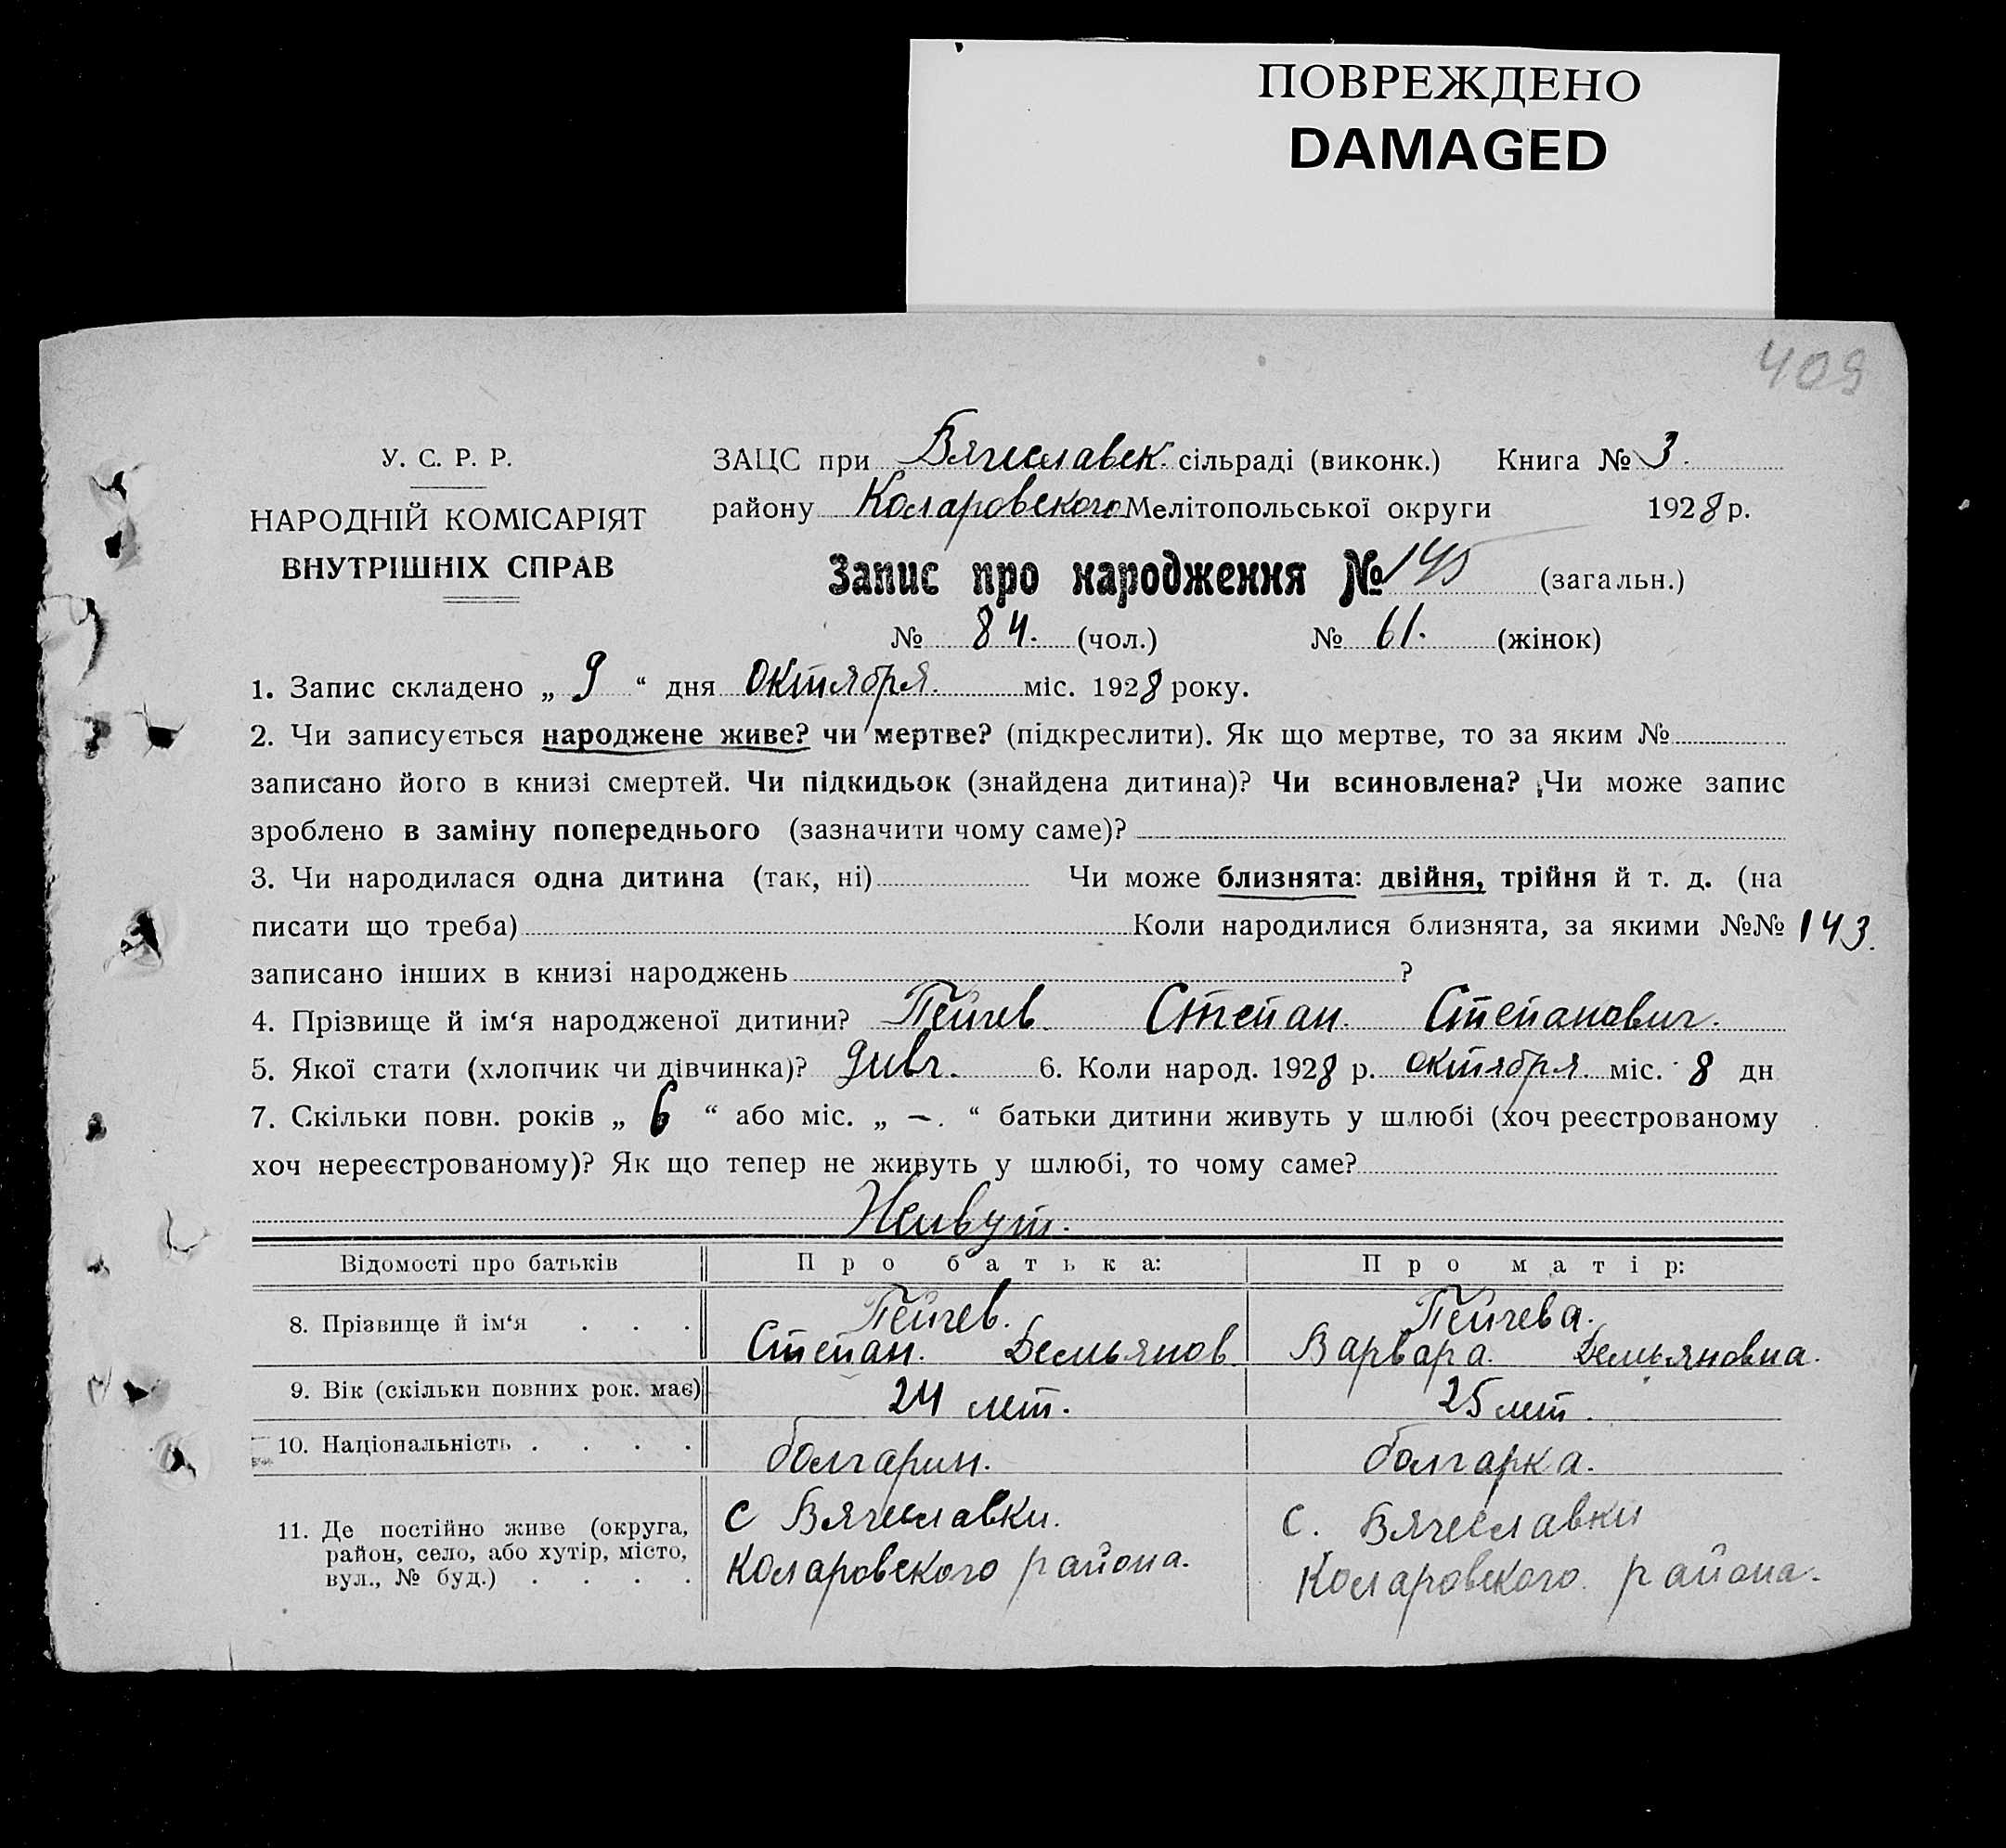 ПОВРЕЖДЕНО
DAMAGED
409
У. С. Р. Р.
НАРОДНІЙ КОМІСАРІЯТ
ВНУТРІШНІХ СПРАВ
ЗАЦС при Вячеславск. сільраді (виконк.) Книга № 3.
району Коларовского Мелітопольської округи 1928 р.
Запис про народження № 145 (загальн.)
№ 84. (чол.) № 61. (жінок)
1. Запис складено „ 9 “ дня Октября. міс. 1928 року.
2. Чи записується народжене живе? чи мертве? (підкреслити). Як що мертве, то за яким №
записано його в книзі смертей. Чи підкидьок (знайдена дитина)? Чи всиновлена? Чи може запис
зроблено в заміну попереднього (зазначити чому саме)?
3. Чи народилася одна дитина (так, ні) Чи може близнята: двійня, трійня й т. д. (на
писати що треба) Коли народилися близнята, за якими №№ 143.
записано інших в книзі народжень ?
4. Прізвище й ім‘я народженої дитини? Пейчев. Степан. Степанович.
5. Якої стати (хлопчик чи дівчинка)? дивч. 6. Коли народ. 1928 р. октября. міс. 8 дн
7. Скільки повн. років „ 6 “ або міс. „ —. “ батьки дитини живуть у шлюбі (хоч реєстрованому
хоч нереєстрованому)? Як що тепер не живуть у шлюбі, то чому саме?
Живут.
Відомості про батьків Про батька: Про матір:
8. Прізвище й ім‘я . . . Пейчев. Степан. Демьянов. Пейчева. Варвара. Демьяновна.
9. Вік (скільки повних рок. має) 24 лет. 25 лет.
10. Національність . . . . болгарин. болгарка.
11. Де постійно живе (округа, с Вячеславки. с. Вячеславки
район, село, або хутір, місто, Коларовского района. Коларовского. района.
вул., № буд.) . . . .